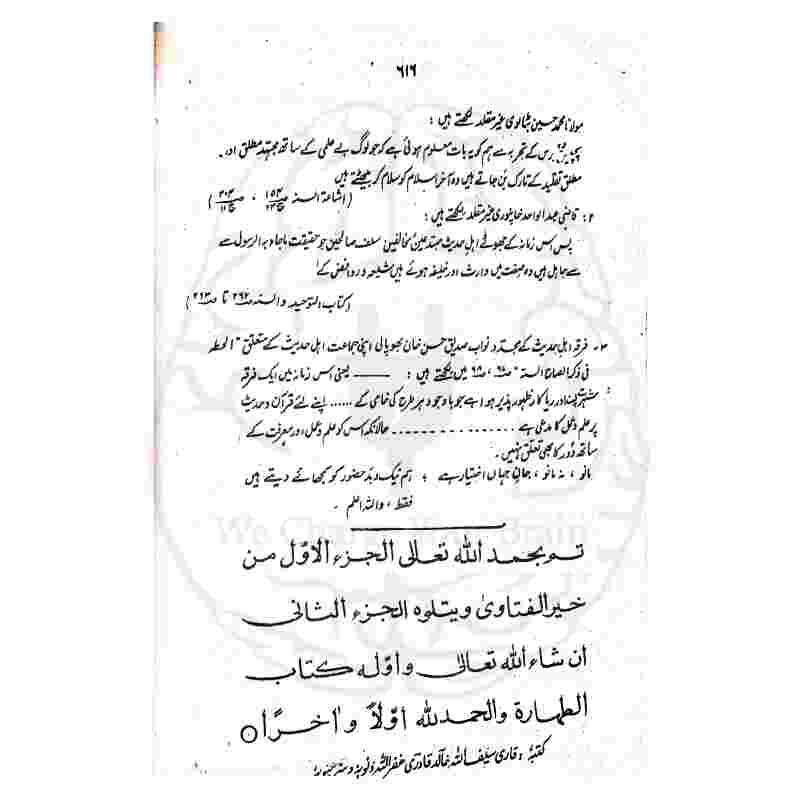 ۶۱۶
مولانا محمد حسین بٹالوی غیر مقلد لکھتے ہیں :
پچیس برس کے تجربہ سے ہم کو یہ بات معلوم ہوئی ہے کہ جو لوگ بے علمی کے ساتھ مجتہد مطلق اور
مطلق تقلید کے تارک بن جاتے ہیں وہ آخر اسلام کو سلام کر بیٹھتے ہیں
(اشاعة السنہ
۲: قاضی عبد الواحد خانپوری غیر مقلد لکھتے ہیں :
پس اس زمانہ کے جھوٹے اہل حدیث مبتدعین مخالفین سلف صالحین جو حقیقت ماجاء بہ الرسول سے
سے جاہل ہیں وہ صفت میں وارث اور خلیفہ ہوئے ہیں شیعہ و روافض کے
(کتاب التوحید والسنہ ص۲۶۲ تا ص۲۶۳)
۳۔ فرقہ اہل حدیث کے مجدد نواب صدیق حسن خان بھوپالی اپنی جماعت اہل حدیث کے متعلق "الحطہ
فی ذکر الصحاح الستہ" میں لکھتے ہیں : ــــــ یعنی اس زمانہ میں ایک فرقہ
شہرت پسند اور ریا کار ظہور پذیر ہوا ہے جو باوجود ہر طرح کی خامی کے ...... اپنے لئے قرآن و حدیث
پر علم و عمل کا مدعی ہے .................. حالانکہ اس کو علم و عمل اور معرفت کے
ساتھ دور کا بھی تعلق نہیں ۔
مانو ، نہ مانو ، جان جہاں اختیار ہے ؛ ہم نیک و بد حضور کو سمجھائے دیتے ہیں
فقط ، واللہ اعلم ۔
We Change Your Brain
تم بحمد الله تعالى الجزء الاوّل من
خير الفتاوىٰ ويتلوه الجزء الثانى
ان شاء الله تعالىٰ واوّله كتاب
الطهارة والحمد لله اوّلاً واٰخرًا○
کتبہٗ : قاری سیف اللہ خالد قادری غفر اللہ ذنوبہ وستر عیوبہ